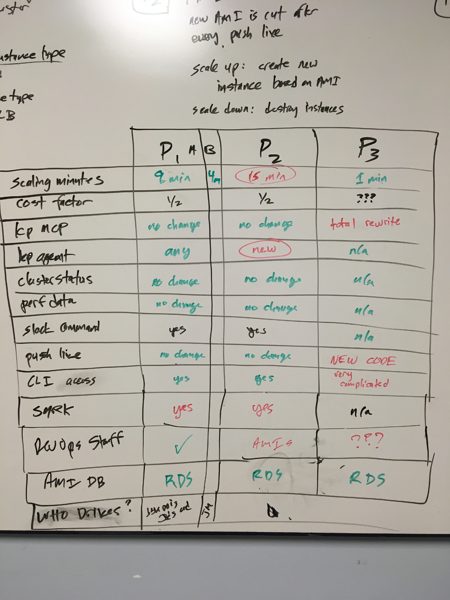 new AMI is cut after
every push live
scale up: create new
instance based on AMI
scale down: destroy instances
instance type
type
LB
P1 A B P2 P3
scaling minutes 9 min 4m 15 min 1 min
cost factor 1/2 1/2 ???
kp mcp no change no change total rewrite
kp agent any new n/a
cluster status no change no change n/a
perf data no change no change n/a
slack command yes yes n/a
push live no change no change NEW CODE
CLI access yes yes very complicated
spark yes yes n/a
DevOps Staff ✓ AMIs ???
AMI DB RDS RDS RDS
Who Drives?